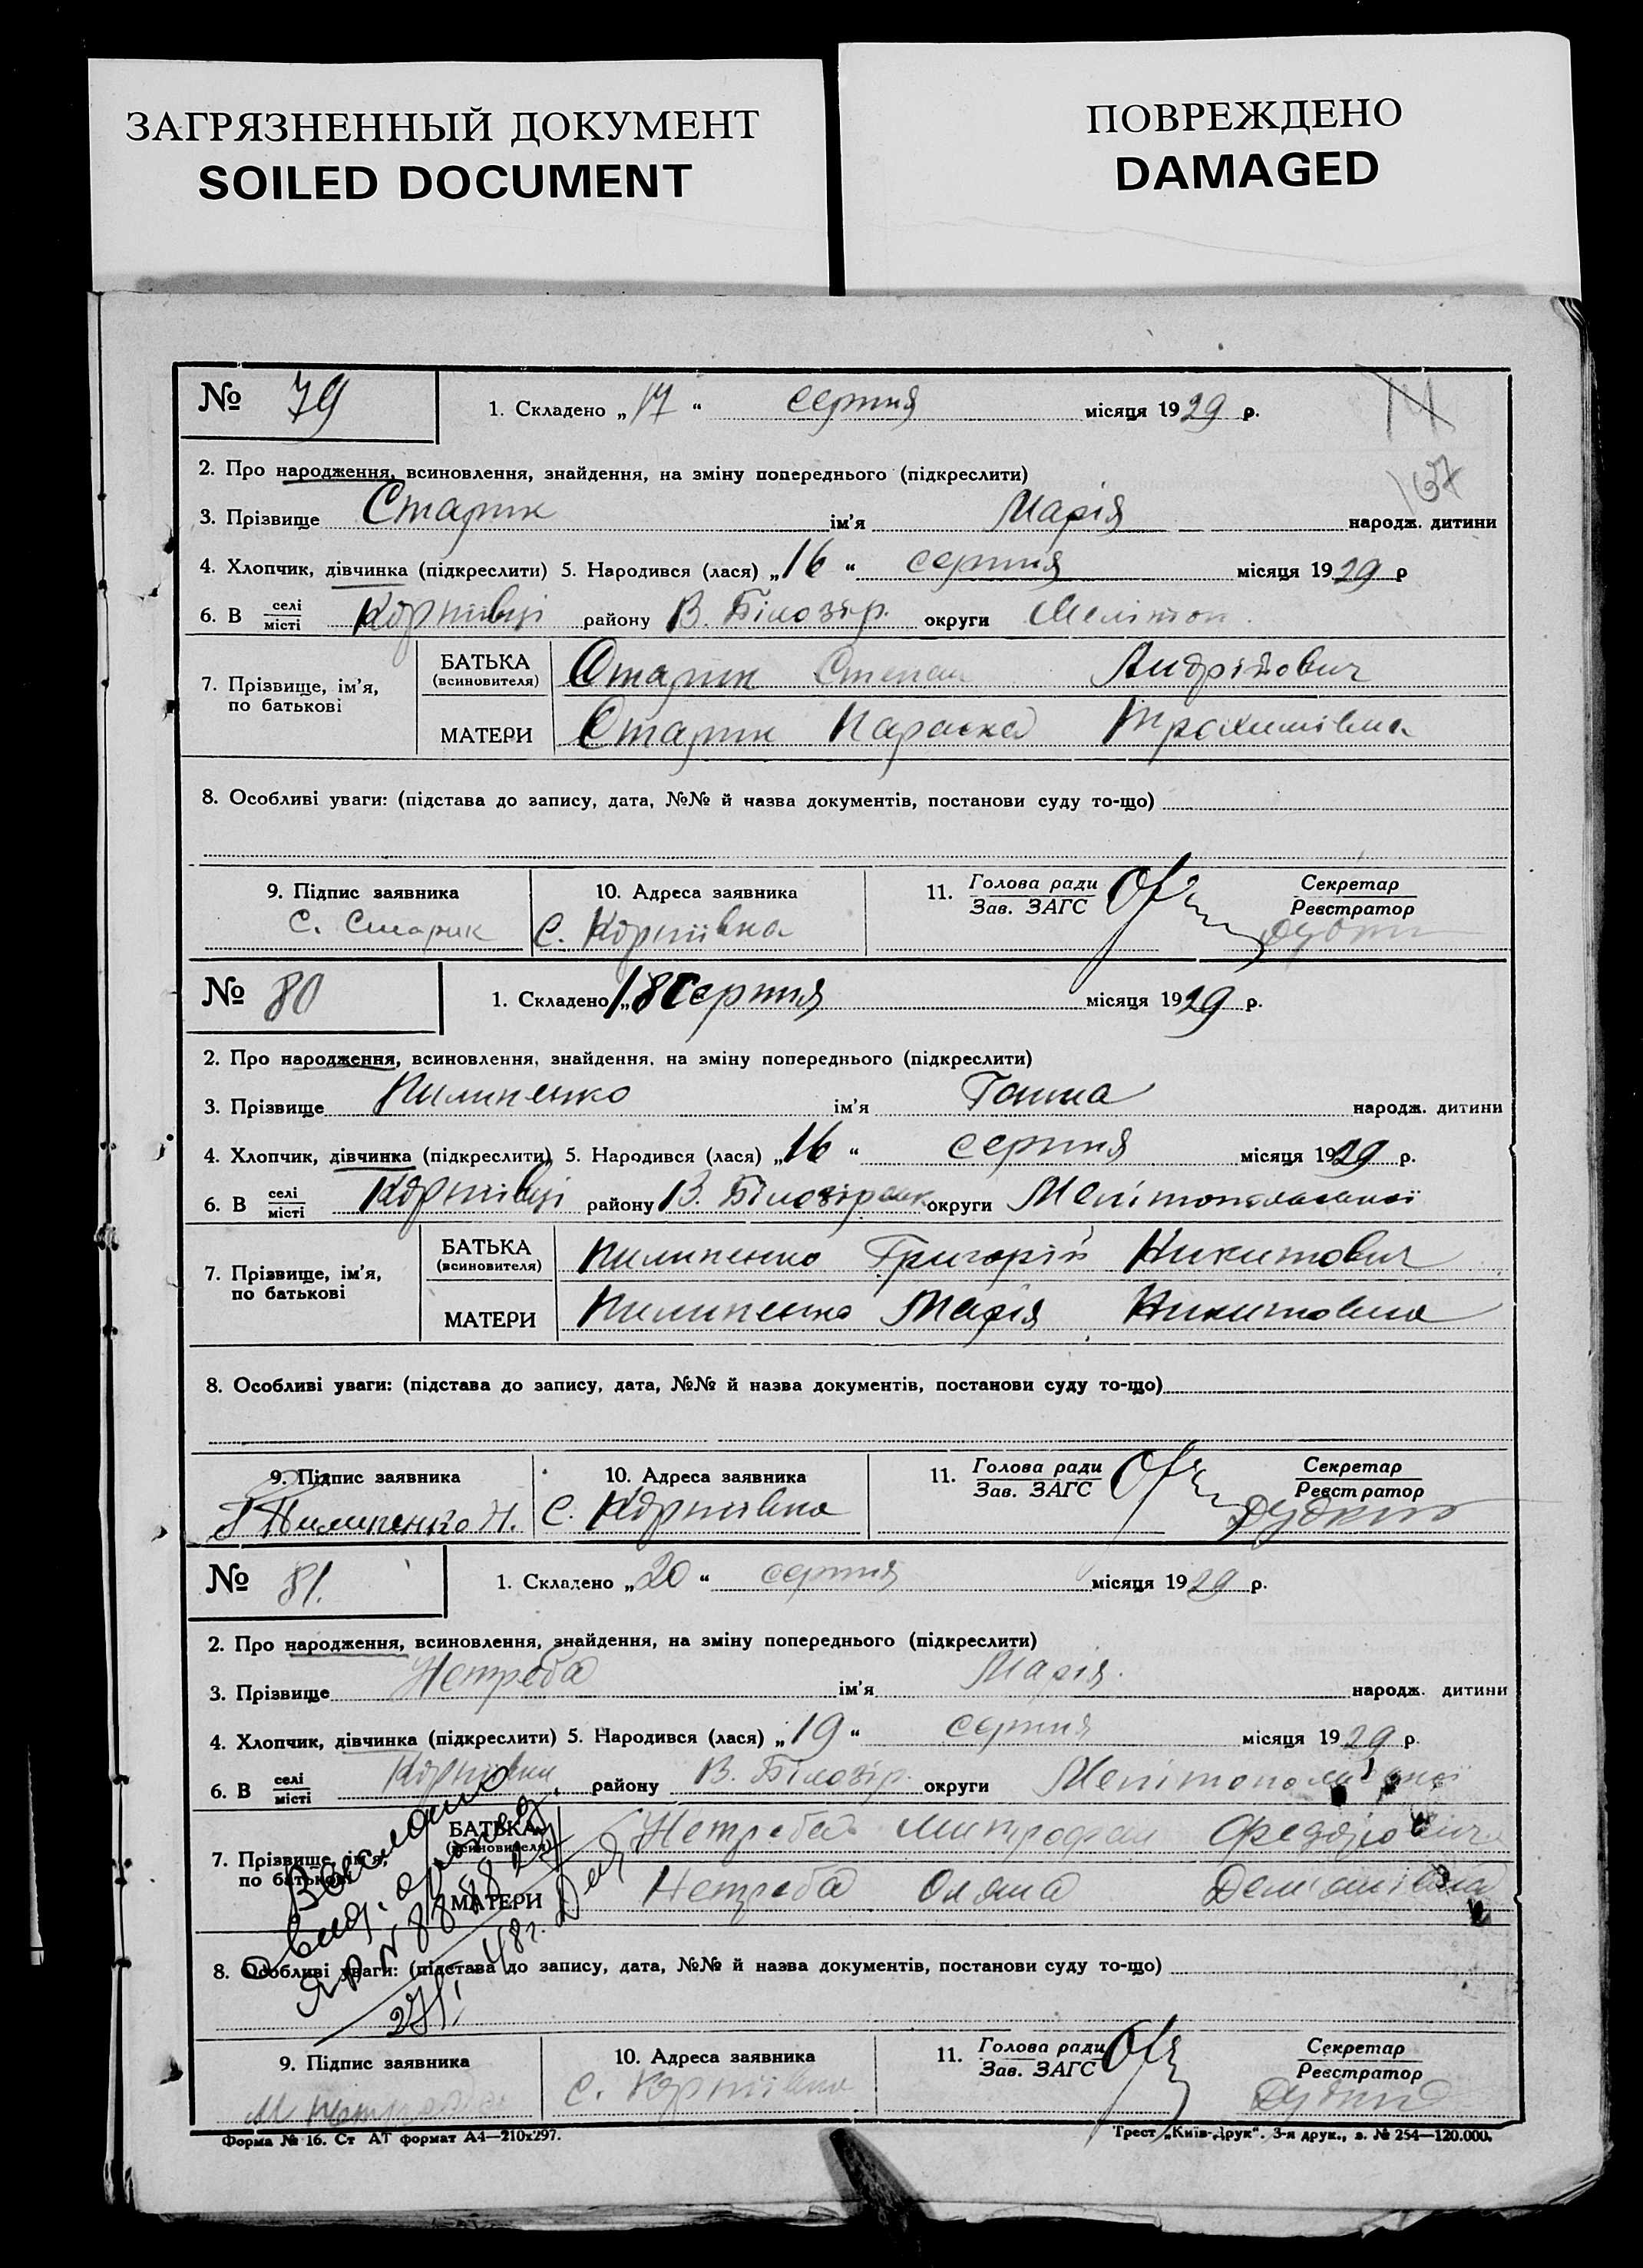 ЗАГРЯЗНЕННЫЙ ДОКУМЕНТ
SOILED DOCUMENT
ПОВРЕЖДЕНО
DAMAGED
№ 79
1. Складено „17“ серпня місяця 1929 р.
14
137
2. Про народження, всиновлення, знайдення, на зміну попереднього (підкреслити)
3. Прізвище Старик ім'я Марія народж. дитини
4. Хлопчик, дівчинка (підкреслити) 5. Народився (лася) „16“ серпня місяця 1929 р
6. В селі місті Корніївці району В. Білозір. округи Мелітоп.
7. Прізвище, ім'я, по батькові
БАТЬКА (всиновителя) Старик Степан Андрійович
МАТЕРИ Старик Параска Трохимівна
8. Особливі уваги: (підстава до запису, дата, №№ й назва документів, постанови суду то-що)
9. Підпис заявника
С. Старик
10. Адреса заявника
С. Корніївка
11. Голова ради Зав. ЗАГС
Секретар Реєстратор
№ 80
1. Складено „18 Серпня місяця 1929 р.
2. Про народження, всиновлення, знайдення, на зміну попереднього (підкреслити)
3. Прізвище Пилипенко ім'я Ганна народж. дитини
4. Хлопчик, дівчинка (підкреслити) 5. Народився (лася) „16“ серпня місяця 1929 р.
6. В селі місті Корніївці району В. Білозірськ. округи Мелітопольської
7. Прізвище, ім'я, по батькові
БАТЬКА (всиновителя) Пилипенко Григорій Никитович
МАТЕРИ Пилипенко Марія Никитовна
8. Особливі уваги: (підстава до запису, дата, №№ й назва документів, постанови суду то-що)
9. Підпис заявника
Пилипенко Н.
10. Адреса заявника
С. Корніївка
11. Голова ради Зав. ЗАГС
Секретар Реєстратор
№ 81.
1. Складено „20“ серпня місяця 1929 р.
2. Про народження, всиновлення, знайдення, на зміну попереднього (підкреслити)
3. Прізвище Нетреба ім'я Марія. народж. дитини
4. Хлопчик, дівчинка (підкреслити) 5. Народився (лася) „19“ серпня місяця 1929 р.
6. В селі місті Корніївки району В. Білозір. округи Мелітопольської
7. Прізвище, ім'я, по батькові
БАТЬКА (всиновителя) Нетреба Митрофан Федорович
МАТЕРИ Нетреба Оляна Дем'янівна
8. Особливі уваги: (підстава до запису, дата, №№ й назва документів, постанови суду то-що)
9. Підпис заявника
10. Адреса заявника
С. Корніївка
11. Голова ради Зав. ЗАГС
Секретар Реєстратор
Форма № 16. Ст АТ формат А4—210х297.
Трест „Київ-Друк“. 3-я друк., з. № 254—120.000.